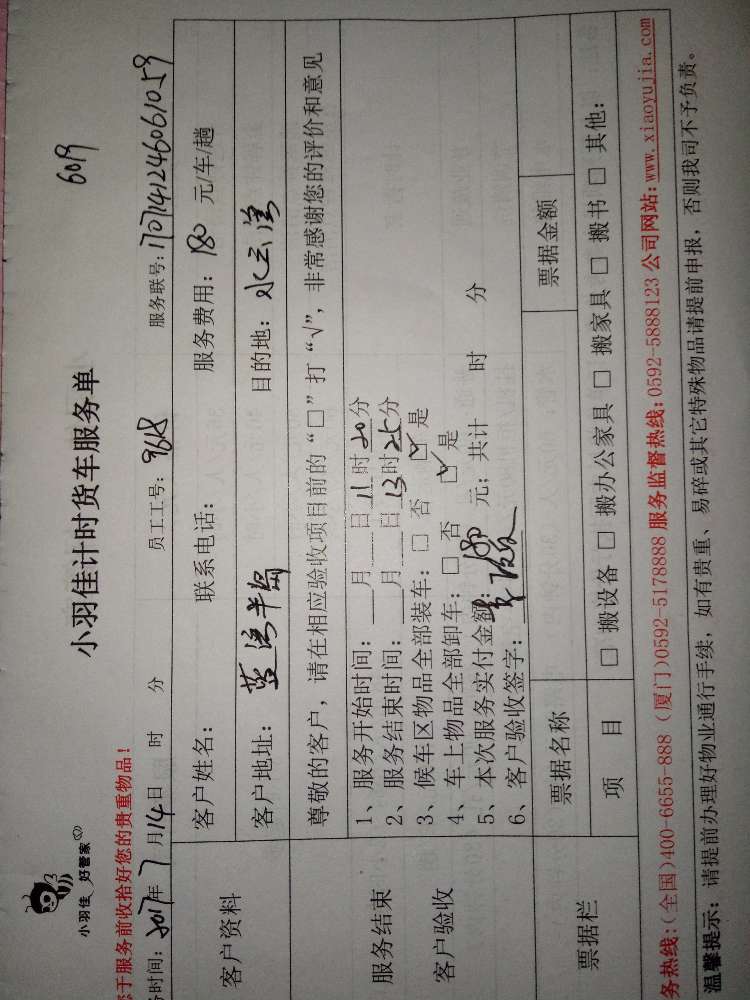 小羽佳 好管家
小羽佳计时货车服务单
6019
于服务前收拾好您的贵重物品！
时间：2017年7月14日 时 分 员工工号：9618 服务联号：1707141246061059
客户资料
客户姓名： 联系电话： 服务费用：180 元/车/趟
客户地址：蓝湾半岛 目的地：水云湾
服务结束
客户验收
尊敬的客户，请在相应验收项目前的“□”打“√”，非常感谢您的评价和意见
1、服务开始时间： 月 日 11 时 20 分
2、服务结束时间： 月 日 13 时 25 分
3、候车区物品全部装车：□ 否 ☑ 是
4、车上物品全部卸车：□ 否 ☑ 是
5、本次服务实付金额：180 元；共计 时 分
6、客户验收签字：
票据栏
票据名称 票据金额
项 目 □ 搬设备 □ 搬办公家具 □ 搬家具 □ 搬书 □ 其他：
务热线：(全国)400-6655-888 (厦门)0592-5178888 服务监督热线：0592-5888123 公司网站：www.xiaoyujia.com
温馨提示：请提前办理好物业通行手续，如有贵重、易碎或其它特殊物品请提前申报，否则我司不予负责。